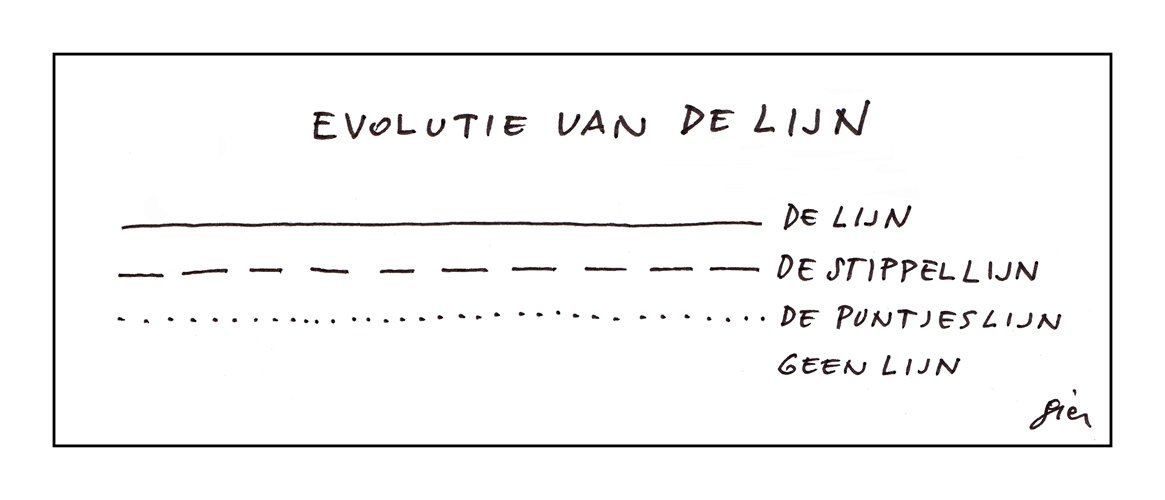 EVOLUTIE VAN DE LIJN
DE LIJN
DE STIPPELLIJN
DE PUNTJESLIJN
GEEN LIJN